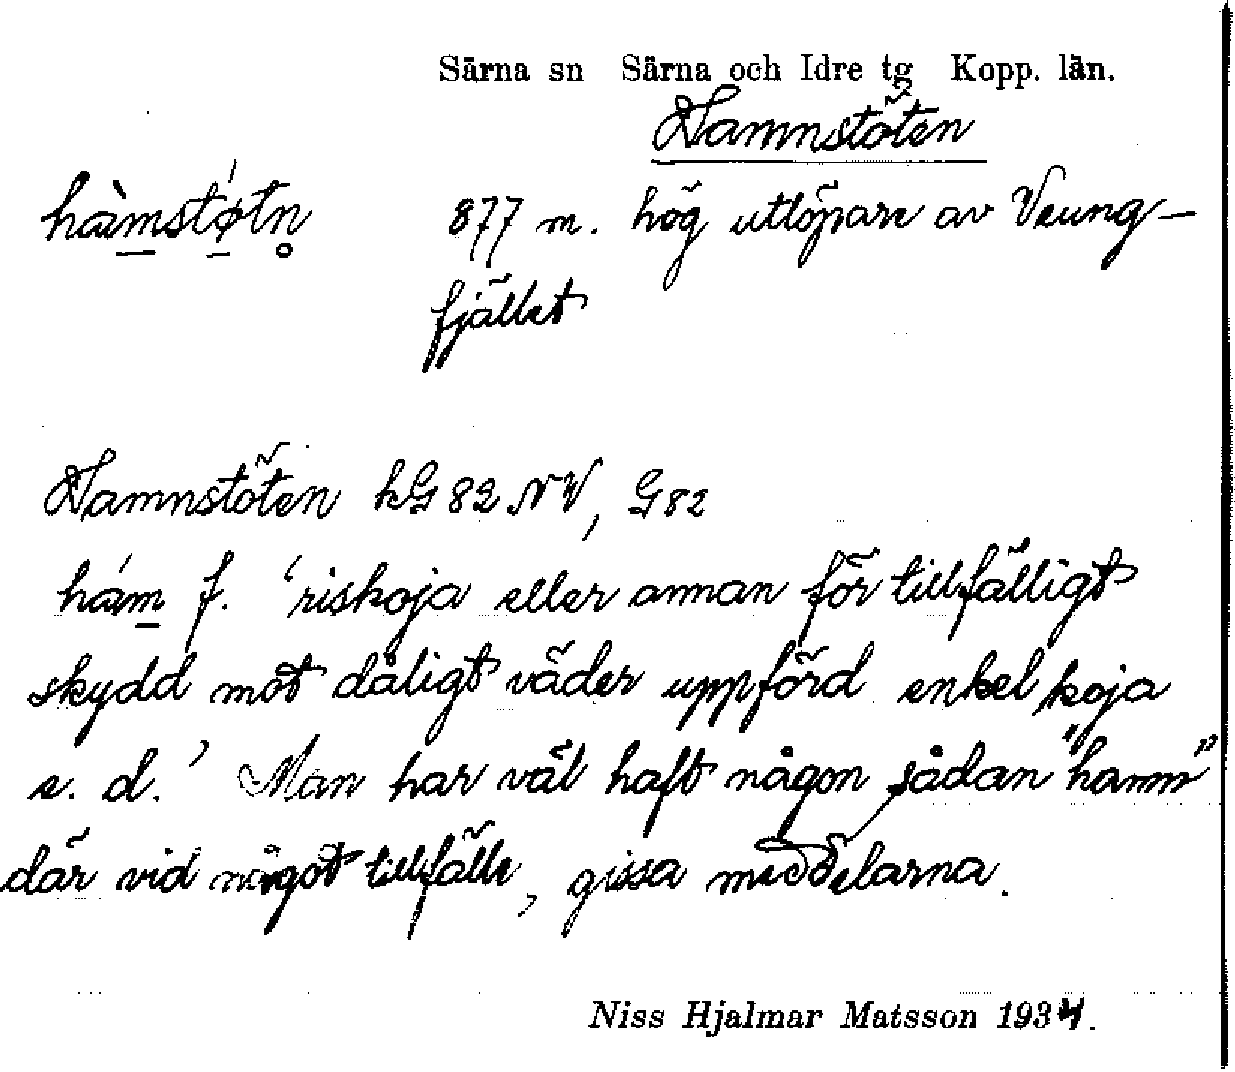 Särna sn Särna och Idre tg Kopp. län.
Hamnstöten
hàmstǿtn̥ 877 m. hög utlöpare av Veung-
fjället
Hamnstöten hG82NV, G82
hám f. 'riskoja eller annan för tillfälligt
skydd mot dåligt väder uppförd enkel koja
e. d.' Man har väl haft någon sådan "hamn"
där vid något tillfälle, gissa meddelarna.
Niss Hjalmar Matsson 1934.